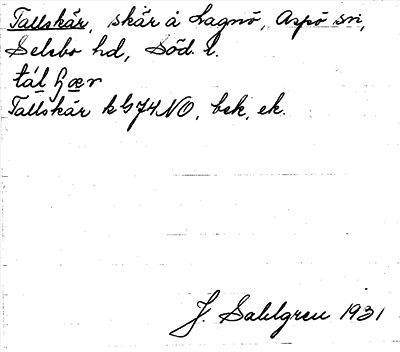 Tallskär, skär å Lagnö, Aspö sn,
Selebo hd, Söd. l.
Tallskär k G74NO, bek, ek.
J. Sahlgren 1931